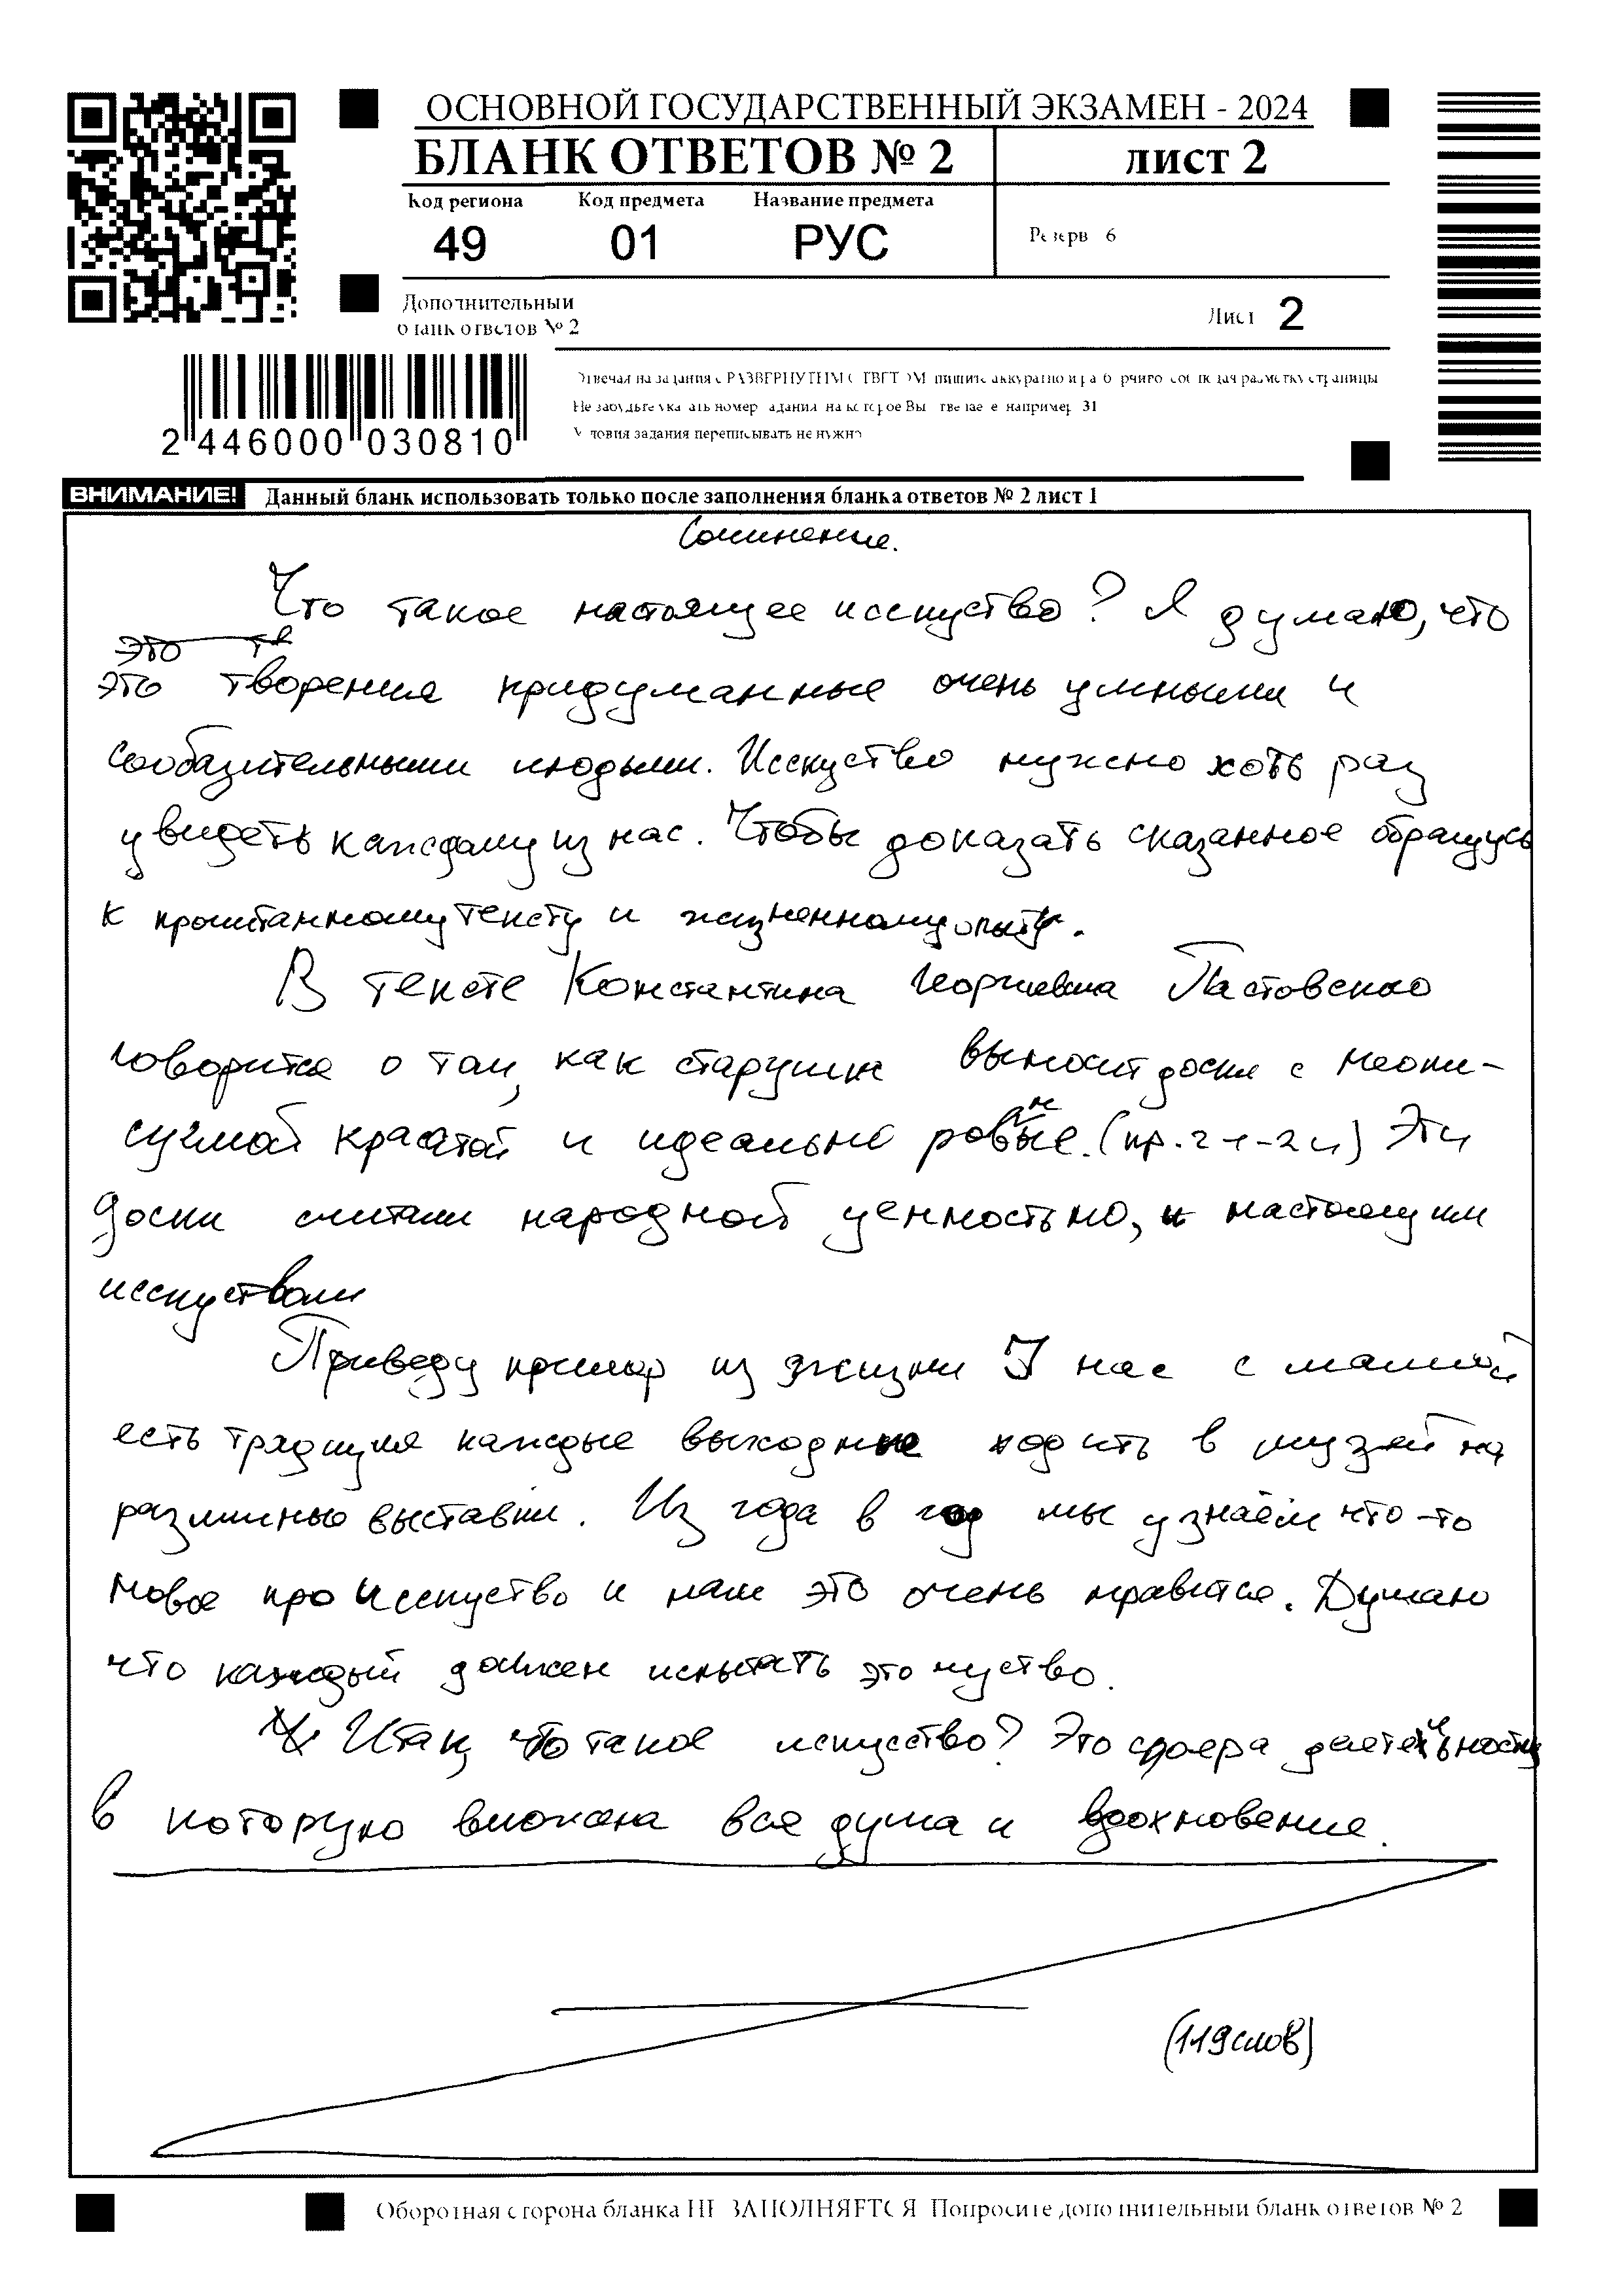 ОСНОВНОЙ ГОСУДАРСТВЕННЫЙ ЭКЗАМЕН - 2024
БЛАНК ОТВЕТОВ № 2
лист 2
Код региона Код предмета Название предмета
49 01 РУС
Резерв 6
Дополнительный
бланк ответов № 2
Лист 2
2 446000 030810
Отвечая на задания с РАЗВЕРНУТЫМ ОТВЕТОМ, пишите аккуратно и разборчиво, соблюдая разметку страницы
Не забудьте указать номер задания, на которое Вы отвечаете, например, 31
Условия задания переписывать не нужно
ВНИМАНИЕ! Данный бланк использовать только после заполнения бланка ответов № 2 лист 1
Сочинение.
Что такое настоящее исскуство? Я думаю, что
это тв
это творения придуманные очень умными и
сообазительными людьми. Исскуство нужно хоть раз
увидеть каждому из нас. Чтобы доказать сказанное обращусь
к прочитанному тексту и жизненному опыту.
В тексте Константина Георгиевича Пастовского
говорится о том, как старушка выносит доски с неопи-
суемой красотой и идеально ровные. (пр. 21-24) Эти
доски считали народной ценностью, и настоящим
исскуством
Приведу пример из жизни У нас с мамой
есть традиция каждые выходные ходить в музей на
различные выставки. Из года в год мы узнаём что-то
новое про исскуство и нам это очень нравится. Думаю
что каждый должен испытать это чуство.
Итак, что такое искусство? Это сфера деятельности
в которую вложена вся душа и вдохновение.
(119 слов)
Оборотная сторона бланка НЕ ЗАПОЛНЯЕТСЯ. Попросите дополнительный бланк ответов № 2